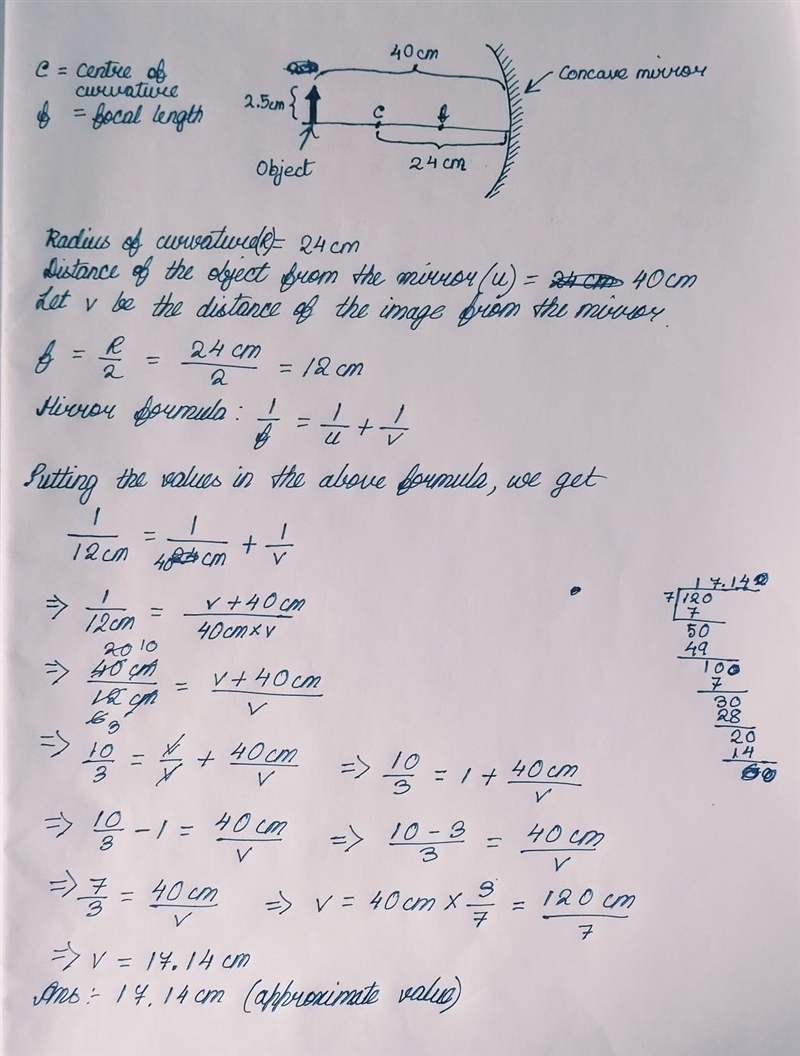 C = Centre of curvature
f = focal length
40cm
2.5cm
C
f
24cm
Object
Concave mirror
Radius of curvature(R) = 24cm
Distance of the object from the mirror (u) = 40cm
Let v be the distance of the image from the mirror.
f = R/2 = 24 cm/2 = 12cm
Mirror formula: 1/f = 1/u + 1/v
Putting the values in the above formula, we get
1/12cm = 1/40cm + 1/v
⇒ 1/12cm = v + 40cm/40cm×v
20 10
⇒ 40cm/12cm = v + 40cm/v
6 3
⇒ 10/3 = v/v + 40cm/v ⇒ 10/3 = 1 + 40cm/v
⇒ 10/3 - 1 = 40cm/v ⇒ 10 - 3/3 = 40cm/v
⇒ 7/3 = 40cm/v ⇒ v = 40cm × 3/7 = 120cm/7
⇒ v = 17.14cm
Ans:- 17.14cm (approximate value)
17.14
7 120
7
50
49
100
7
30
28
20
14